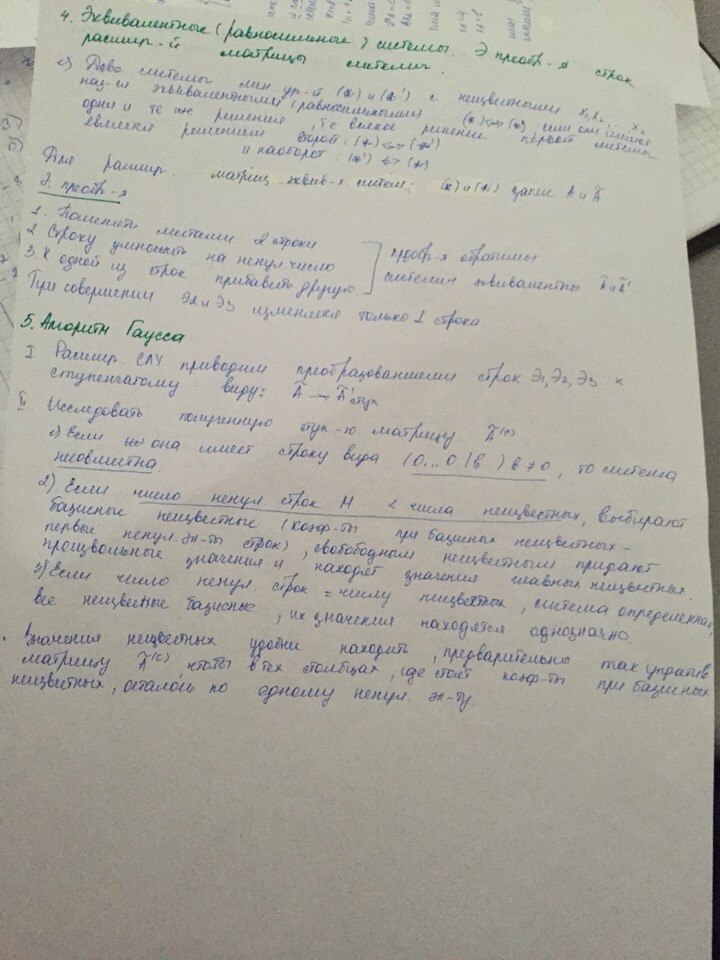 4. Эквивалентные (равносильные) системы. Э преобр-я строк
расшир-й матрицы системы.
Две системы лин. ур-й (*) и (*') с неизвестными x₁, x₂, ..., xₙ
наз-ся эквивалентными (равносильными) (*) <=> (*'), если они имеют
одни и те же решения, те всякое решение первой системы
является решением второй: (*) <=> (*')
и наоборот: (*') <=> (*)
Для расшир. матриц эквив-х систем: (*) и (*') запис Ã и Ã'
Э. преобр-я
1. Поменять местами 2 строки
2. Строку умножить на ненул. число
3. К одной из строк прибавить другую
преобр-я обратимы
системы эквивалентны Ã и Ã'
При совершении Э2 и Э3 изменяется только 1 строка
5. Алгоритм Гаусса
I. Расшир. СЛУ приводим преобразованиями строк Э₁, Э₂, Э₃ к
ступенчатому виду: Ã → Ã'ступ
II. Исследовать полученную ступ-ю матрицу Ã⁽ᶜ⁾
1) Если она имеет строку вида (0...0|b) b≠0, то система
несовместна.
2) Если число ненул. строк < числа неизвестных, выбирают
базисные неизвестные (коэф-ты при базисных неизвестных –
первые ненул. эл-ты строк), свободным неизвестным придают
произвольные значения и находят значения главных неизвестных.
3) Если число ненул. строк = числу неизвестных, система определенная,
все неизвестные базисные, их значения находятся однозначно.
Значения неизвестных удобно находить, предварительно так упростив
матрицу Ã⁽ᶜ⁾ чтобы в тех столбцах, где стоят коэф-ты при базисных
неизвестных, осталось по одному ненул. эл-ту.